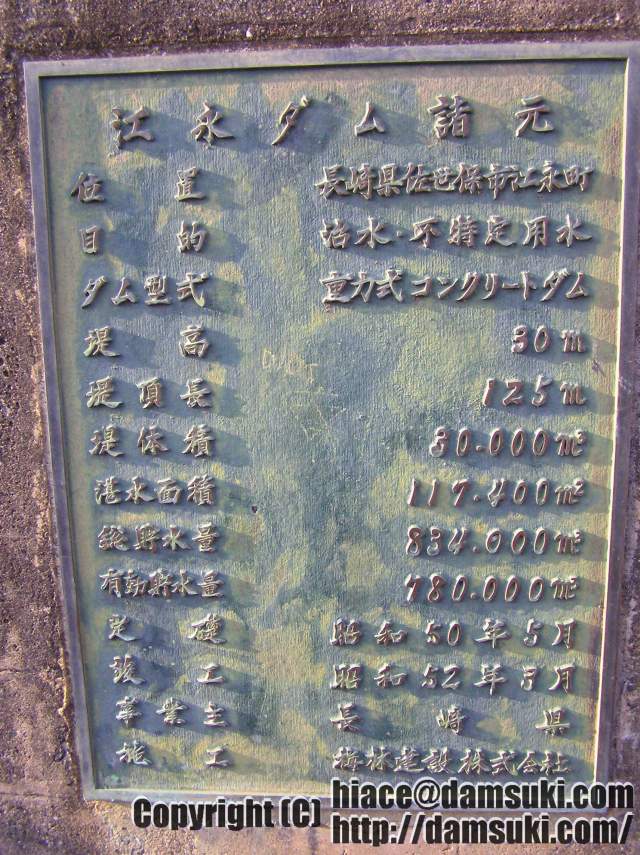 江永ダム諸元
位置 長崎県佐世保市江永町
目的 治水・不特定用水
ダム型式 重力式コンクリートダム
堤高 30m
堤頂長 125m
堤体積 30.000m³
湛水面積 117.400m²
総貯水量 834.000m³
有効貯水量 780.000m³
定礎 昭和50年5月
竣工 昭和52年3月
事業主 長崎県
施工 梅林建設株式会社
Copyright (C) hiace@damsuki.com
http://damsuki.com/